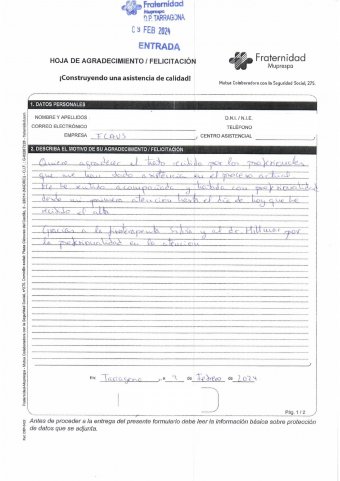 Fraternidad
Muprespa
D.P. TARRAGONA
09 FEB 2024
ENTRADA
HOJA DE AGRADECIMIENTO / FELICITACIÓN
Fraternidad
Muprespa
¡Construyendo una asistencia de calidad!
Mutua Colaboradora con la Seguridad Social, 275
1. DATOS PERSONALES
NOMBRE Y APELLIDOS
D.N.I. / N.I.E.
CORREO ELECTRÓNICO
TELÉFONO
EMPRESA
CENTRO ASISTENCIAL
2. DESCRIBA EL MOTIVO DE SU AGRADECIMIENTO / FELICITACIÓN
Quiero agradecer el trato recibido por los profesionales
que me han dado asistencia en el proceso actual
He sido acompañada y tratada con profesionalidad
desde mi primera atención hasta el día de hoy que he
recibido el alta
Gracias a la fisioterapeuta Silvia y al dr. por
la profesionalidad en la atención
En Tarragona, a de Febrero de 2024
Pág. 1 / 2
Antes de proceder a la entrega del presente formulario debe leer la información básica sobre protección
de datos que se adjunta.